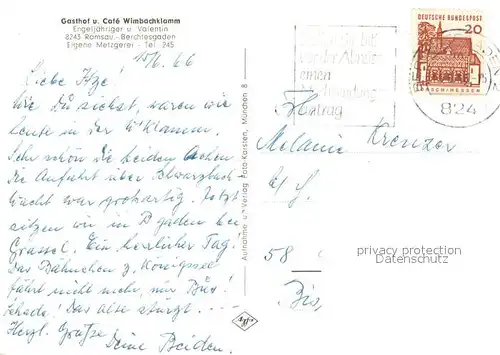 Gasthof u. Café Wimbachklamm
Engeljähriger u. Valentin
8243 Ramsau - Berchtesgaden
Eigene Metzgerei - Tel. 245
15/6. 66
Liebe
Wie Du siehst, waren wir
heute in der W'klamm.
Sehr schön die beiden
die Auffahrt über Schwarzbach
wacht war großartig. Jetzt
sitzen wir in B'gaden bei
Grassel. Ein herrlicher Tag.
Das Bähnchen z. Königssee
fährt nicht mehr, nur Bus!
Schade! Das Alte stürzt....
Herzl. Grüße
Deine Beiden.
Aufnahme und Verlag Foto-Karsten, München 8
Agfa
DEUTSCHE BUNDESPOST
20
LORSCH/HESSEN
vor der
einen
antrag
824
Melanie Krenzer
58
privacy protection
Datenschutz